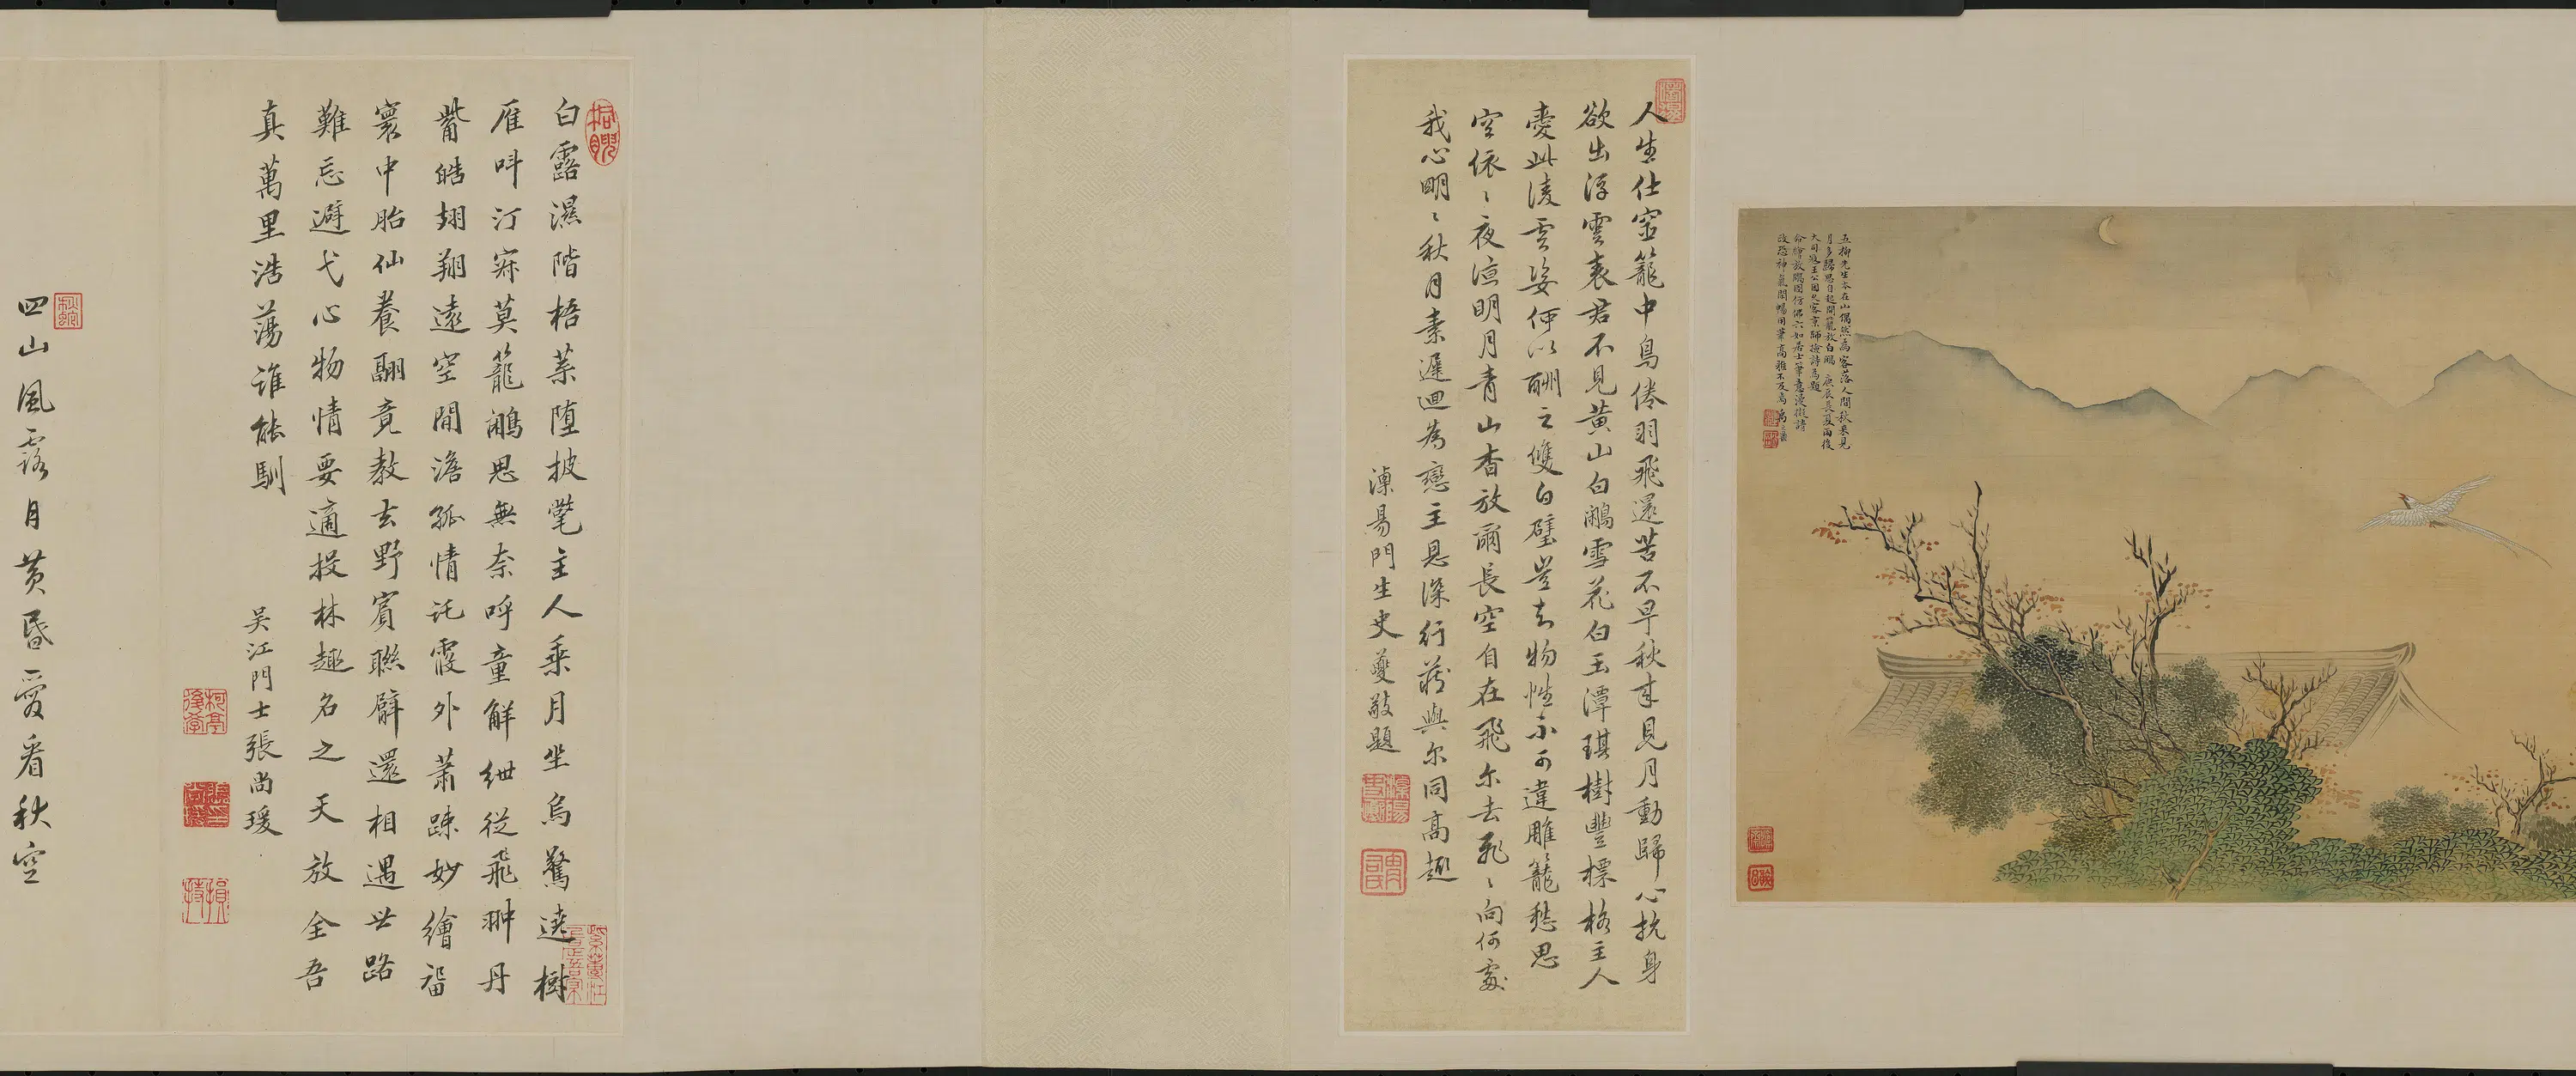 五柳先生本在山偶然為客落人間秋來見
月多歸思自起開籠放白鷴 庚辰長夏雨後
大司寇王公因久客京師擬詩為題
命繪放鷴圖仿佛六如居士筆意漫擬請
政恐神氣閒暢用筆高雅不及焉 禹之鼎
人生仕宦籠中鳥倦羽飛還苦不早秋來見月動歸心抗身
欲出浮雲表君不見黃山白鷴雪花白玉潭琪樹豐標格主人
愛此凌雲姿何以酬之雙白璧豈知物性不可違雕籠愁思
空依〻夜涼明月青山杳放爾長空自在飛尔去飛〻向何處
我心明〻秋月素遲迴為戀主恩深行藏與尔同高趣
溧昜門生史夔敬題
白露濕階梧葉墮披氅主人乘月坐烏驚遶樹
雁呌汀寂莫籠鷴思無奈呼童觧紲從飛翀丹
觜皓翅翔遠空閒澹孤情託霞外蕭踈妙繪留
寰中胎仙養翮竟教去野賓聯臂還相遇世路
難忘避弋心物情要適投林趣名之天放全吾
真萬里浩蕩誰能馴
吴江門士張尚瑗
四山風露月黄昏愛看秋空